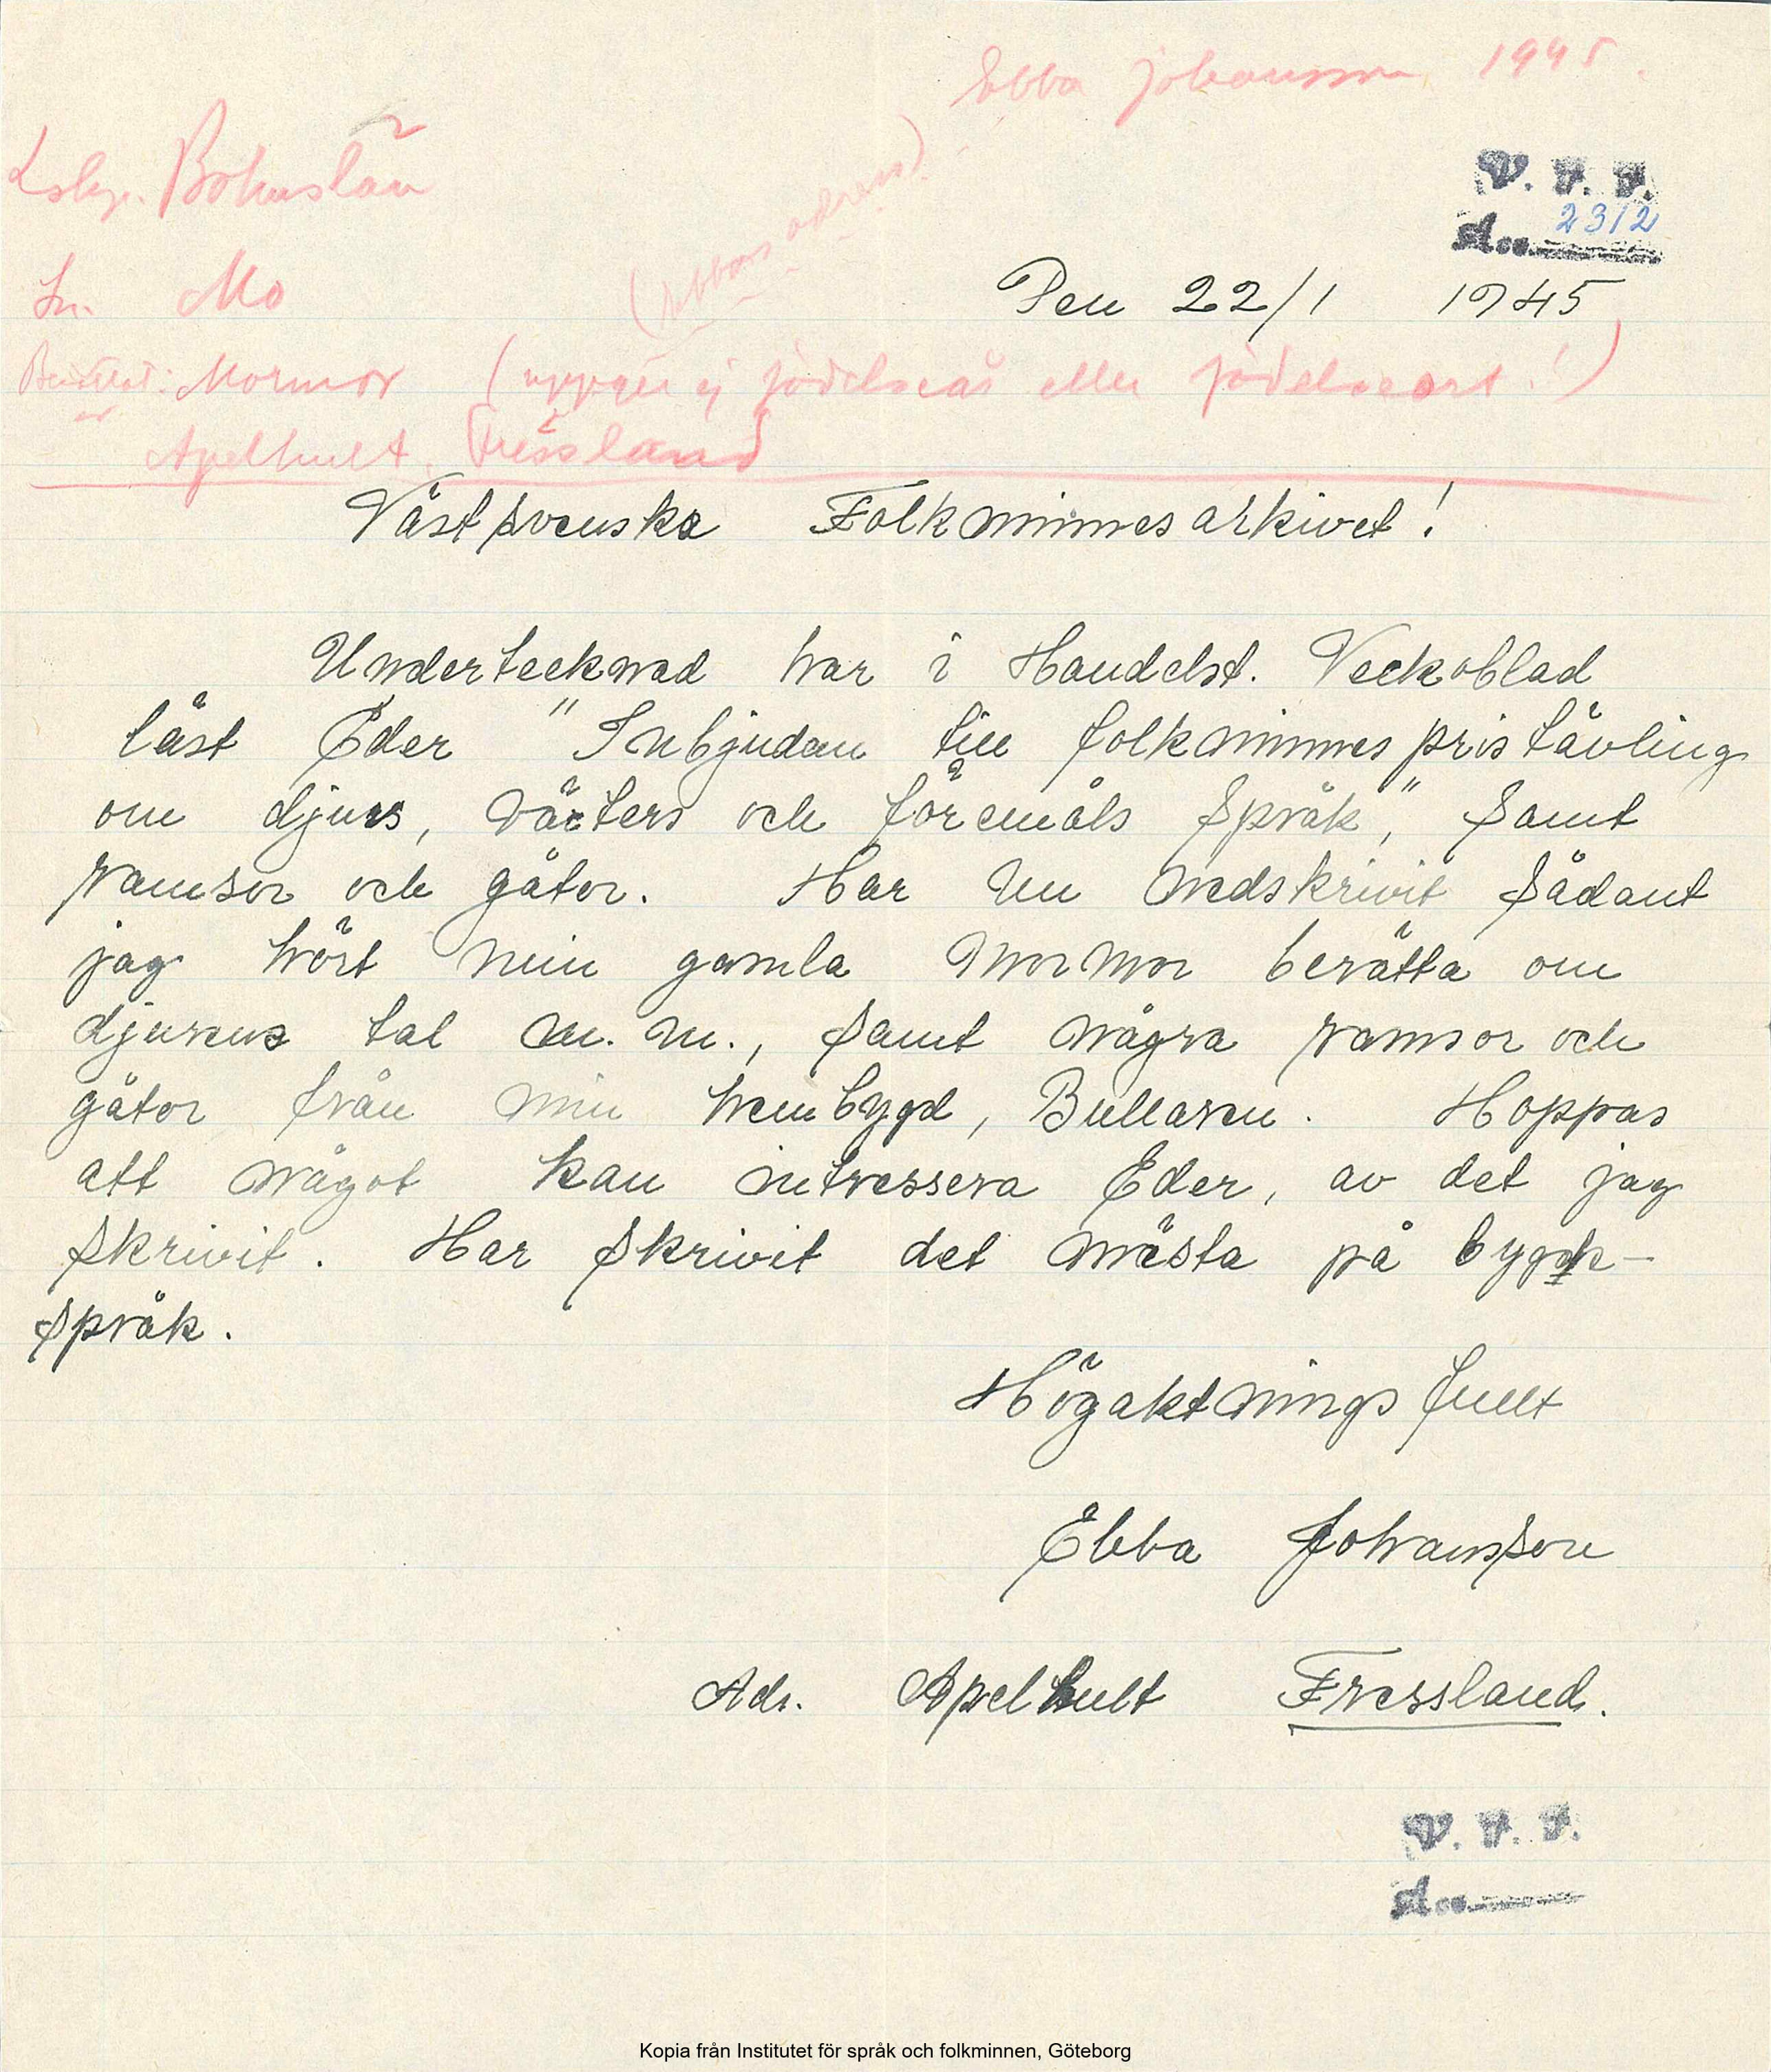 Ebba Johansson 1945.
Lskp. Bohuslän
V. F. F.
Acc. 2312
Sn. Mo
(Ebbas adress)
Den 22/1 1945
Berättat: Mormor (uppger ej födelseår eller födelseort!)
av
Apelhult, Fressland
Västsvenska Folkminnesarkivet!
Undertecknad har i Handelst. Veckoblad
läst Eder "Inbjudan till folkminnespristävling
om djurs, växters och föremåls språk," samt
ramsor och gåtor. Har nu nedskrivit sådant
jag hört min gamla mormor berätta om
djurens tal m. m., samt några ramsor och
gåtor från min hembygd, Bullaren. Hoppas
att något kan intressera Eder, av det jag
skrivit. Har skrivit det mästa på bygde-
språk.
Högaktningsfullt
Ebba Johansson
Adr. Apelhult Fressland.
V. F. F.
Acc.
Kopia från Institutet för språk och folkminnen, Göteborg